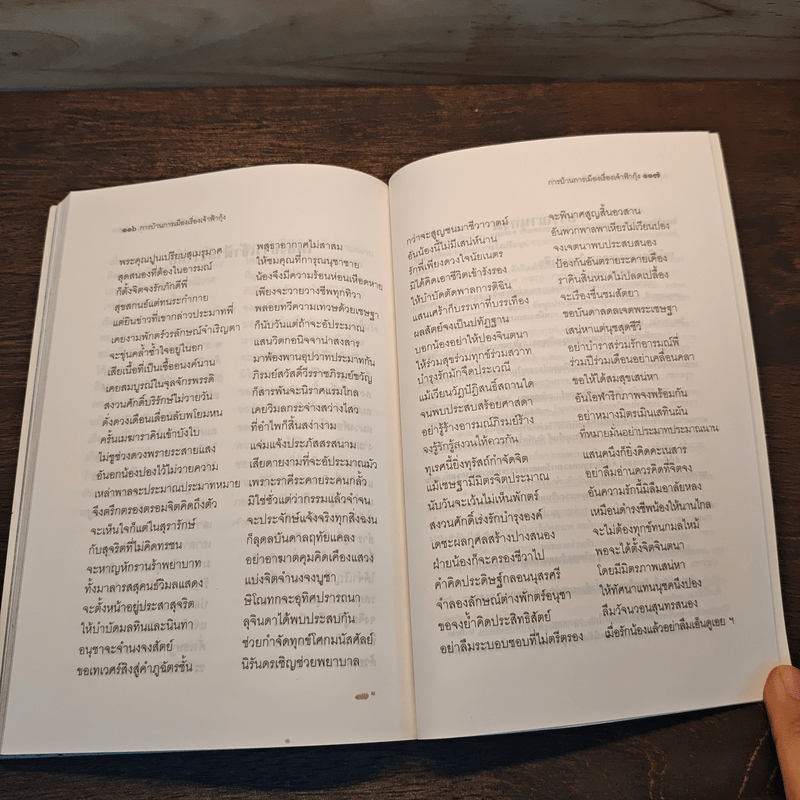 ๑๑๖ การบ้านการเมืองเรื่องเจ้าฟ้ากุ้ง
พระคุณปูนเปรียบสุเมรุมาศ พสุธาอากาศไม่สาสม
สุดสนองที่ต้องในอารมณ์ ให้ชมคุณที่การุณนุชาชาย
ก็ตั้งจิตจงรักภักดีพี่ น้องจึงมีความร้อนห่อนเหือดหาย
สุขสกนธ์แต่ทนระกำกาย เพียงจะวายวางชีพทุกทิวา
แต่ยินข่าวที่เขากล่าวประมาทพี่ พลอยทวีความเทวษด้วยเชษฐา
เคยงามพักตร์วรลักษณ์จำเริญตา ก็นับวันแต่ถ้าจะอัประมาณ
จะชุ่นคล้ำช้ำใจอยู่ในอก แสนวิตกอนิจจาน่าสงสาร
เสียเนื้อที่เป็นเชื้ออนงค์นาน มาพ้องพานอุปวาทประมาทกัน
เคยสมบูรณ์ในจุลจักรพรรดิ ภิรมย์สวัสดิ์วีรราชภิรมย์ขวัญ
สงวนศักดิ์บริรักษ์ไม่วายวัน ก็สารพันจะนิราศแรมไกล
ดั่งดวงเดือนเลื่อนลับพโยมหน เคยวิมลกระจ่างสว่างไสว
ครั้นเมฆาราคินเข้าบังใบ ที่อำไพก็สิ้นสง่างาม
ไม่ชูช่วงดวงพรายระสายแสง แจ่มแจ้งประภัสสรสนาม
อันอกน้องปองไว้ไม่วายความ เสียดายงามที่จะอัประมาณมัว
เหล่าพาลจะประมาณประมาทหมาย เพราะราคีระคายระคนกลั้ว
จึงตรึกตรองตรอมจิตคิดถึงตัว มิใช่ชั่วแต่ว่ากรรมแล้วจำจน
จะเห็นใจก็แต่ในสุรารักษ์ จะประจักษ์แจ้งจริงทุกสิ่งฉงน
กับสุจริตที่ไม่คิดทรชน ก็ลุดลบันดาลฤทัยแคลง
จะหาญหักรานร้าพยาบาท อย่าอาฆาตคุมคิดเคืองแสวง
ทั้งมาลารสสุคนธ์วิมลแสดง แบ่งจิตจำนงจงบูชา
จะตั้งหน้าอยู่ประสาสุจริต ษิโณทกจะอุทิศปรารถนา
ให้บำบัดมลทินและนินทา ลุจินดาได้พบประสบกัน
อนุชาจะจำนงจงสัตย์ ช่วยกำจัดทุกข์โศกมนัสศัลย์
ขอเทเวศร์สิงสู่คำภูฉัตรชั้น นิรันดรเชิญช่วยพยาบาล
การบ้านการเมืองเรื่องเจ้าฟ้ากุ้ง ๑๑๗
กว่าจะสูญชนมาชีวาวาตม์ จะพินาศสูญสิ้นอวสาน
อันน้องนี้ไม่มีเสน่ห์นาน อันพวกพาลพาเหียรไม่เวียนปอง
รักพี่เพียงดวงใจนัยเนตร จงเจตนาพบประสบสนอง
มิได้คิดเอาชีวิตเข้ารังรอง ป้องกันอันตรายระคายเคือง
ให้บำบัดตัดพาลการติฉิน ราคินสิ้นหมดไม่ปลดเปลื้อง
แสนเศร้าก็บรรเทาที่บรรเทือง จะเรืองชื่นชมสัตยา
ผลสัตย์จงเป็นปทัฏฐาน ขอบันดาลดลเจตพระเชษฐา
บอกน้องอย่าให้ปองจินตนา เสน่หาแต่นุชสุดชีวี
ให้ร่วมสุขร่วมทุกข์ร่วมสวาท อย่าบำราสร่วมรักร่วมอารมณ์พี่
บำรุงรักมักจืดประเวณี ร่วมปีร่วมเดือนอย่าเคลื่อนคลา
แม้เวียนวัฏปัฏิสนธิ์สถานใด ขอให้ได้สมสุขเสน่หา
จนพบประสบสร้อยศาสดา อันโอฬาริกภาพจงพร้อมกัน
อย่ารู้ร้างอารมณ์ภิรมย์ร้าง อย่าหมางมิตรเมินเสทินผัน
จงรู้รักรู้สงวนให้อวรกัน ที่หมายมั่นอย่าประมาทประมาณนาน
ทุเรศนี้ยิ่งทุรัสถ์กำจัดจิต แสนคนึงก็ยิ่งคิดคะเนสาร
แม้เชษฐามีมิตรจิตประมาณ อย่าลืมอ่านควรคิดที่จิตจง
นับวันจะเว้นไม่เห็นพักตร์ อันความรักนี้มีลืมอาลัยหลง
สงวนศักดิ์เร่งรักบำรุงองค์ เหมือนดำรงชีพน้องให้นานไกล
เดชะผลกุศลสร้างปางสนอง จะไม่ต้องทุกข์ทนกมลไหม้
ฝ่ายน้องก็จะครองชีวาไป พอจะได้ตั้งจิตจินตนา
คำคิดประดิษฐ์กลอนนุสรศรี โดยมีมิตรภาพเสน่หา
จำลองลักษณ์ต่างพักตร์อนุชา ให้ทัศนาแทนนุชคนึงปอง
ขอจงย้ำคิดประสิทธิ์สัตย์ ลืมวัจนวอนสุนทรสนอง
อย่าลืมระบอบชอบที่ไม่ตรีตรอง เมื่อรักน้องแล้วอย่าลืมเอ็นดูเอย ฯ